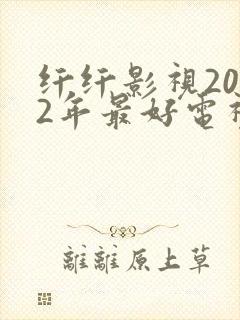 纤纤影視20
2年最好電視
離離原上草